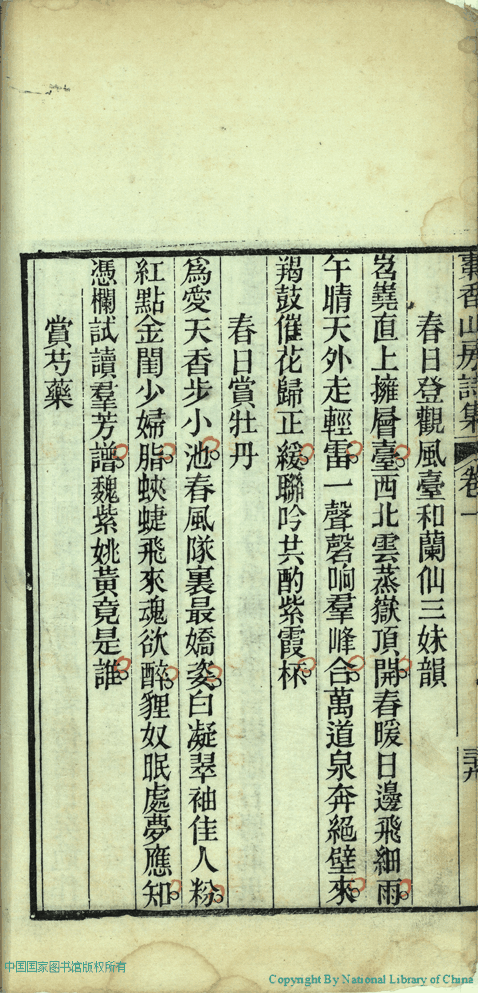 香山房詩集 卷一
春日登觀風臺和蘭仙三妹韻
岧嶤直上擁層臺西北雲蒸嶽頂開春暖日邊飛細雨
午晴天外走輕雷一聲磬响羣峰合萬道泉奔絕壁來
羯鼓催花歸正緩聯吟共酌紫霞杯
春日賞牡丹
爲愛天香步小池春風隊裏最嬌姿白凝翠袖佳人粉
紅點金閨少婦脂蛺蜨飛來魂欲醉貍奴眠處夢應知
憑欄試讀羣芳譜魏紫姚黃竟是誰
賞芍藥
中国国家图书馆版权所有
Copyright By National Library of China